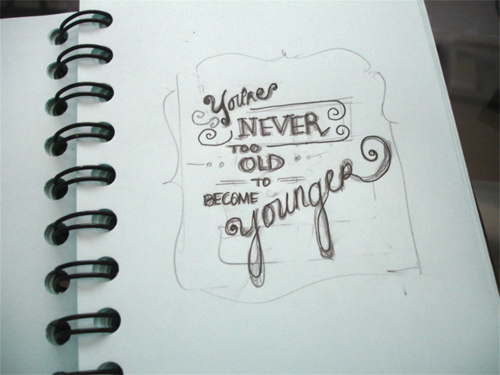 You're
NEVER
TOO
OLD
TO
BECOME
younger